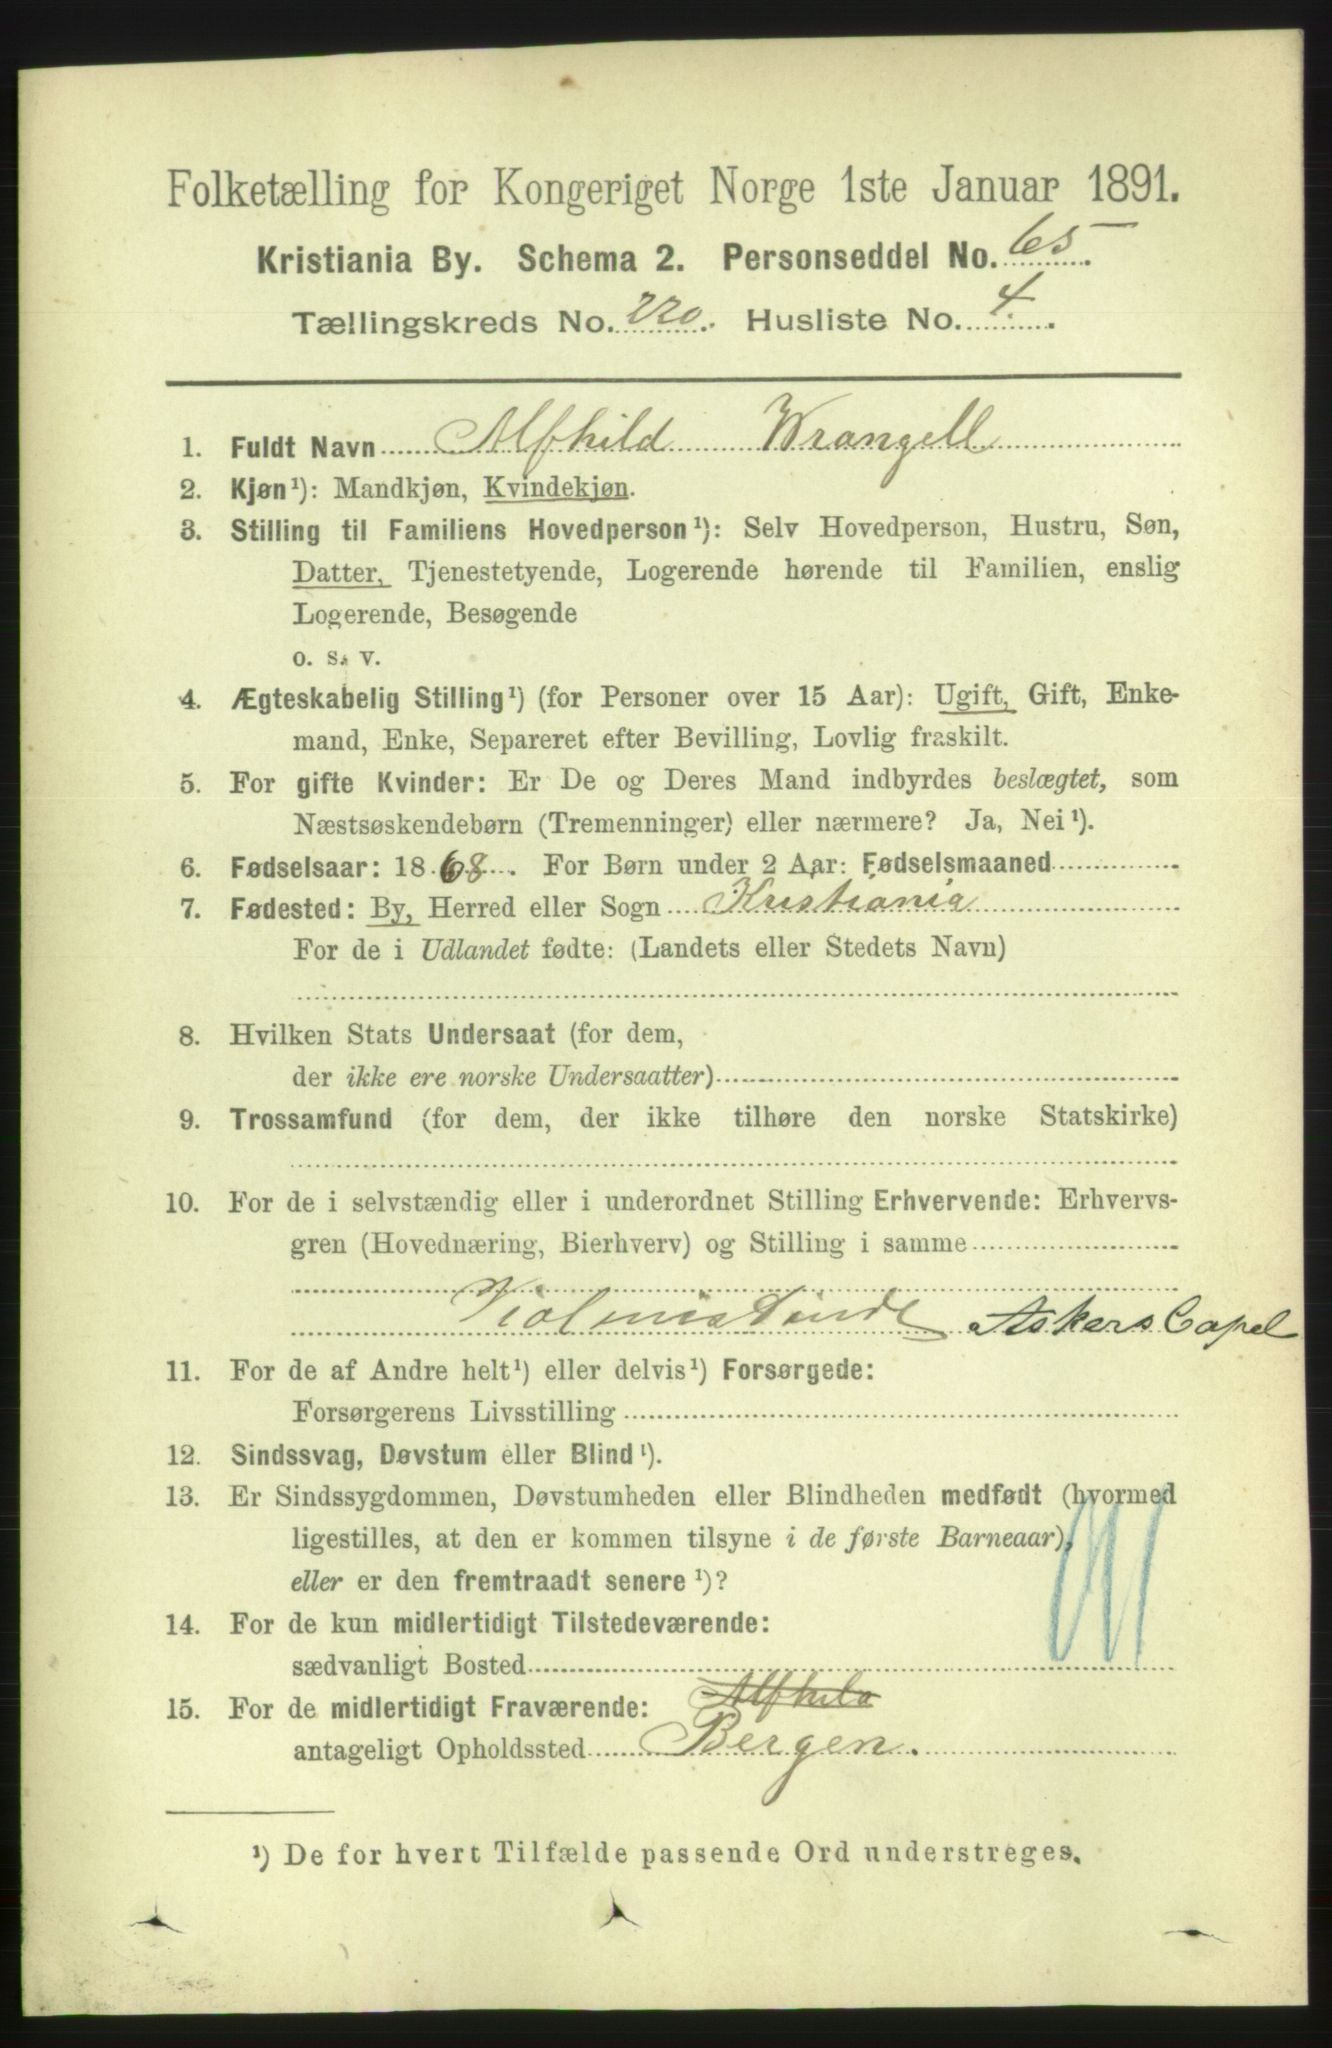 Folketælling for Kongeriget Norge 1ste Januar 1891.
Kristiania By. Schema 2. Personseddel No. 65
Tællingskreds No. 220. Husliste No. 4.
1. Fuldt Navn Alfhild Wrangell
2. Kjøn¹): Mandkjøn, Kvindekjøn.
3. Stilling til Familiens Hovedperson¹): Selv Hovedperson, Hustru, Søn,
Datter, Tjenestetyende, Logerende hørende til Familien, enslig
Logerende, Besøgende
o. s. v.
4. Ægteskabelig Stilling¹) (for Personer over 15 Aar): Ugift, Gift, Enke-
mand, Enke, Separeret efter Bevilling, Lovlig fraskilt.
5. For gifte Kvinder: Er De og Deres Mand indbyrdes beslægtet, som
Næstsøskendebørn (Tremenninger) eller nærmere? Ja, Nei¹).
6. Fødselsaar: 1868. For Børn under 2 Aar: Fødselsmaaned
7. Fødested: By, Herred eller Sogn Kristiania
For de i Udlandet fødte: (Landets eller Stedets Navn)
8. Hvilken Stats Undersaat (for dem,
der ikke ere norske Undersaatter)
9. Trossamfund (for dem, der ikke tilhøre den norske Statskirke)
10. For de i selvstændig eller i underordnet Stilling Erhvervende: Erhvervs-
gren (Hovednæring, Bierhverv) og Stilling i samme
Violinistinde Askers Capel
11. For de af Andre helt¹) eller delvis¹) Forsørgede:
Forsørgerens Livsstilling
12. Sindssvag, Døvstum eller Blind¹).
13. Er Sindssygdommen, Døvstumheden eller Blindheden medfødt (hvormed
ligestilles, at den er kommen tilsyne i de første Barneaar),
eller er den fremtraadt senere¹)?
14. For de kun midlertidigt Tilstedeværende:
sædvanligt Bosted
15. For de midlertidigt Fraværende: Alfhild
antageligt Opholdssted Bergen.
¹) De for hvert Tilfælde passende Ord understreges.